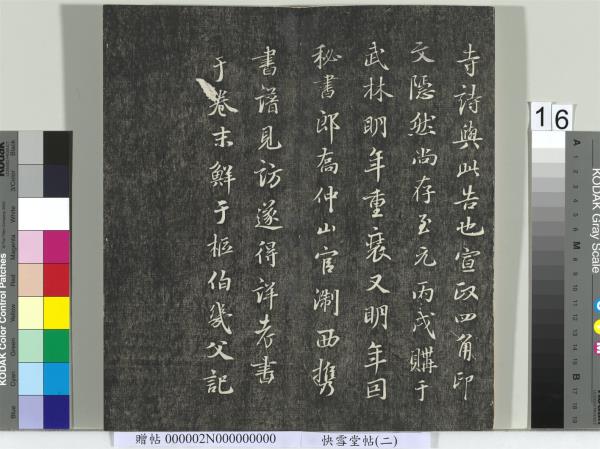 寺詩與此告也宣政四角印
文隱然尚存至元丙戌購于
武林明年重裝又明年因
秘書郎喬仲山官淛西携
書譜見訪遂得詳考書
于卷末鮮于樞伯幾父記
16
KODAK Color Control Patches
Blue
Cyan
Green
Yellow
Red
Magenta
White
3/Color
Black
KODAK Gray Scale
A 1 2 3 4 5 6 M 8 9 10 11 12 13 14 15 B 17 18 19
贈帖 000002N000000000 快雪堂帖(二)